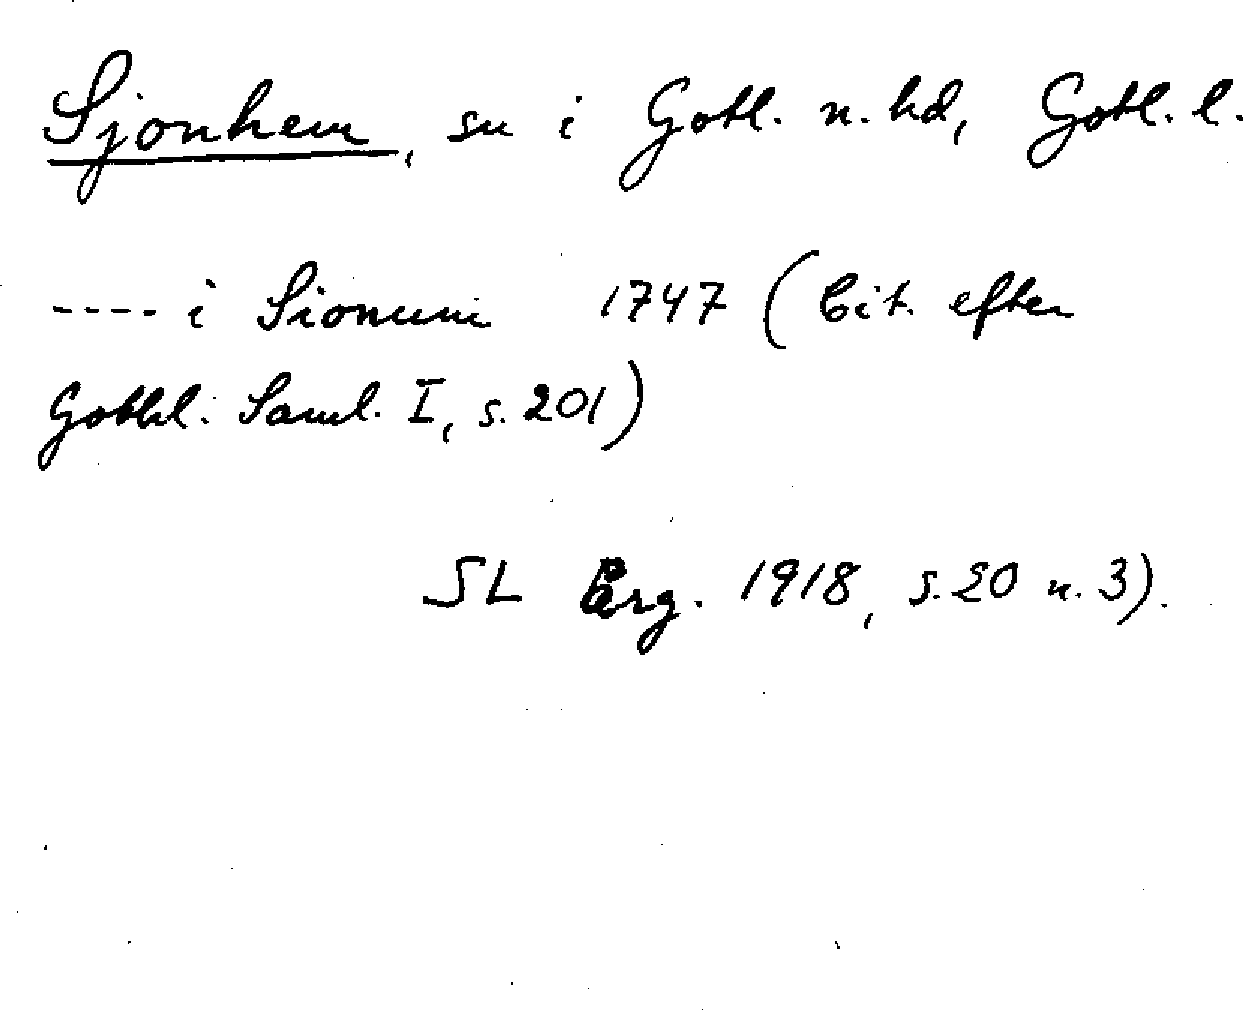 Sjonhem, sn i Gotl. n. hd, Gotl. l.
---- i Sionum 1747 (Cit. efter
Gotländ. Saml. I, s. 201)
SL Årg. 1918, s. 20 n. 3).